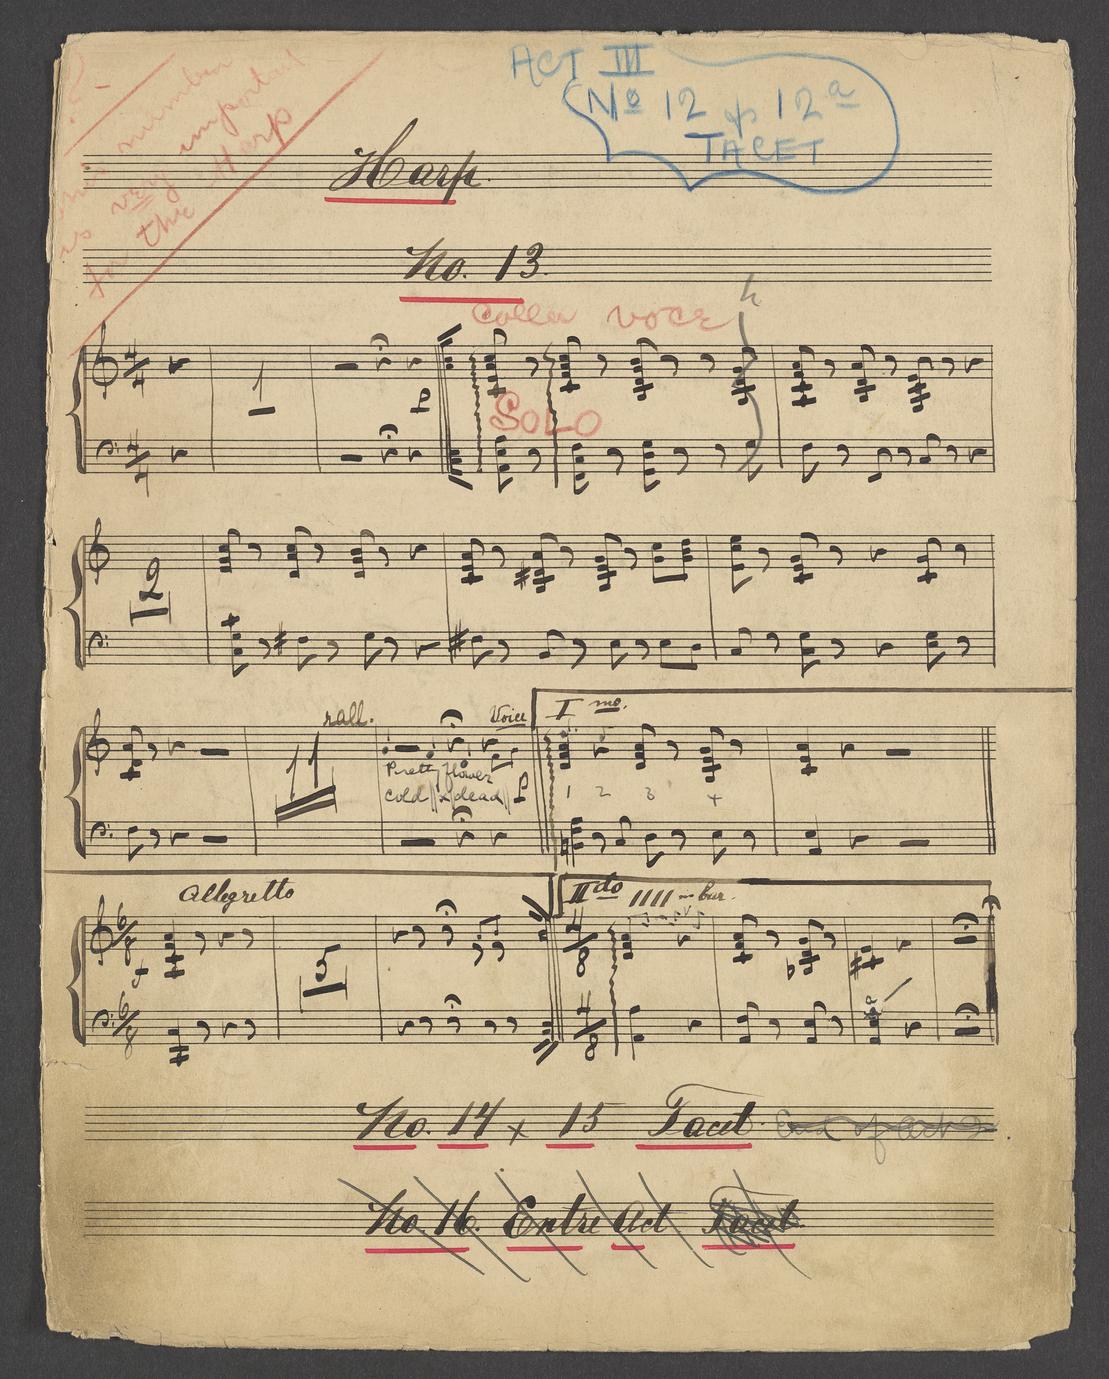 ACT III
No 12 & 12a
TACET
this number
is very important
for the Harp
Harp.
No. 13.
colla voce
SOLO
1
P
2
rall.
Voice
I mo.
11
Pretty flower
cold & dead
P
1 2 3 4
Allegretto
II do
in bar.
5
No. 14 x 15 Tacet.
End of Act 2
No. 16. Entre Act Tacet.